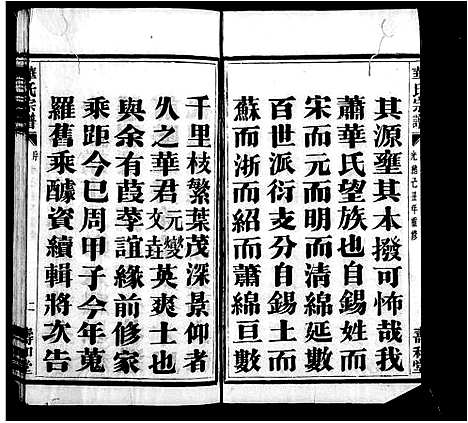 華氏宗譜
光緒辛丑年重修
壽和堂
其源壅其本撥可怖哉我
蕭華氏望族也自錫姓而
宋而元而明而清綿延數
百世派衍支分自錫土而
蘇而浙而紹而蕭綿亘數
千里枝繁葉茂深景仰者
久之華君元燮文垚英爽士也
與余有葭莩誼緣前修家
乘距今已周甲子今年蒐
羅舊乘醵資續輯將次告
華氏宗譜
序
二
壽和堂